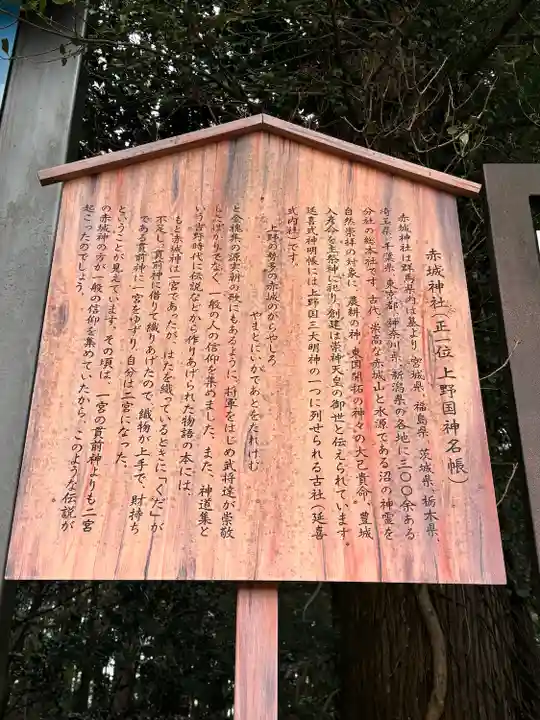 赤城神社(正一位 上野国神名帳)
赤城神社は群馬県内は基より、宮城県、福島県、茨城県、栃木県、
埼玉県、千葉県、東京都、神奈川県、新潟県の各地に三〇〇余ある
分社の総本社です。古代、崇高な赤城山と水源である沼の神霊を
自然崇拝の対象に、農耕の神、東国開拓の神々の大己貴命、豊城
入彦命を主祭神に祀り、創建は崇神天皇の御世と伝えられています。
延喜式神明帳には上野国三大明神の一つに列せられる古社(延喜
式内社)です。
上野の勢多の赤城のからやしろ
やまとにいかであとをたれけむ
と金槐集の源実朝の歌にもあるように、将軍をはじめ武将達が崇敬
したばかりでなく、一般の人の信仰を集めました。また、神道集と
いう吉野時代に伝説などから作りあげられた物語の本には、
もと赤城神は一宮であったが、はたを織っているときに「くだ」が
不足し、貫前神に借りて織りあげたので、織物が上手で、財持ち
である貫前神に一宮をゆずり、自分は二宮になった、
ということが見えています。その頃は、一宮の貫前神よりも二宮
の赤城神の方が一般の信仰を集めていたから、このような伝説が
起こったのでしょう。